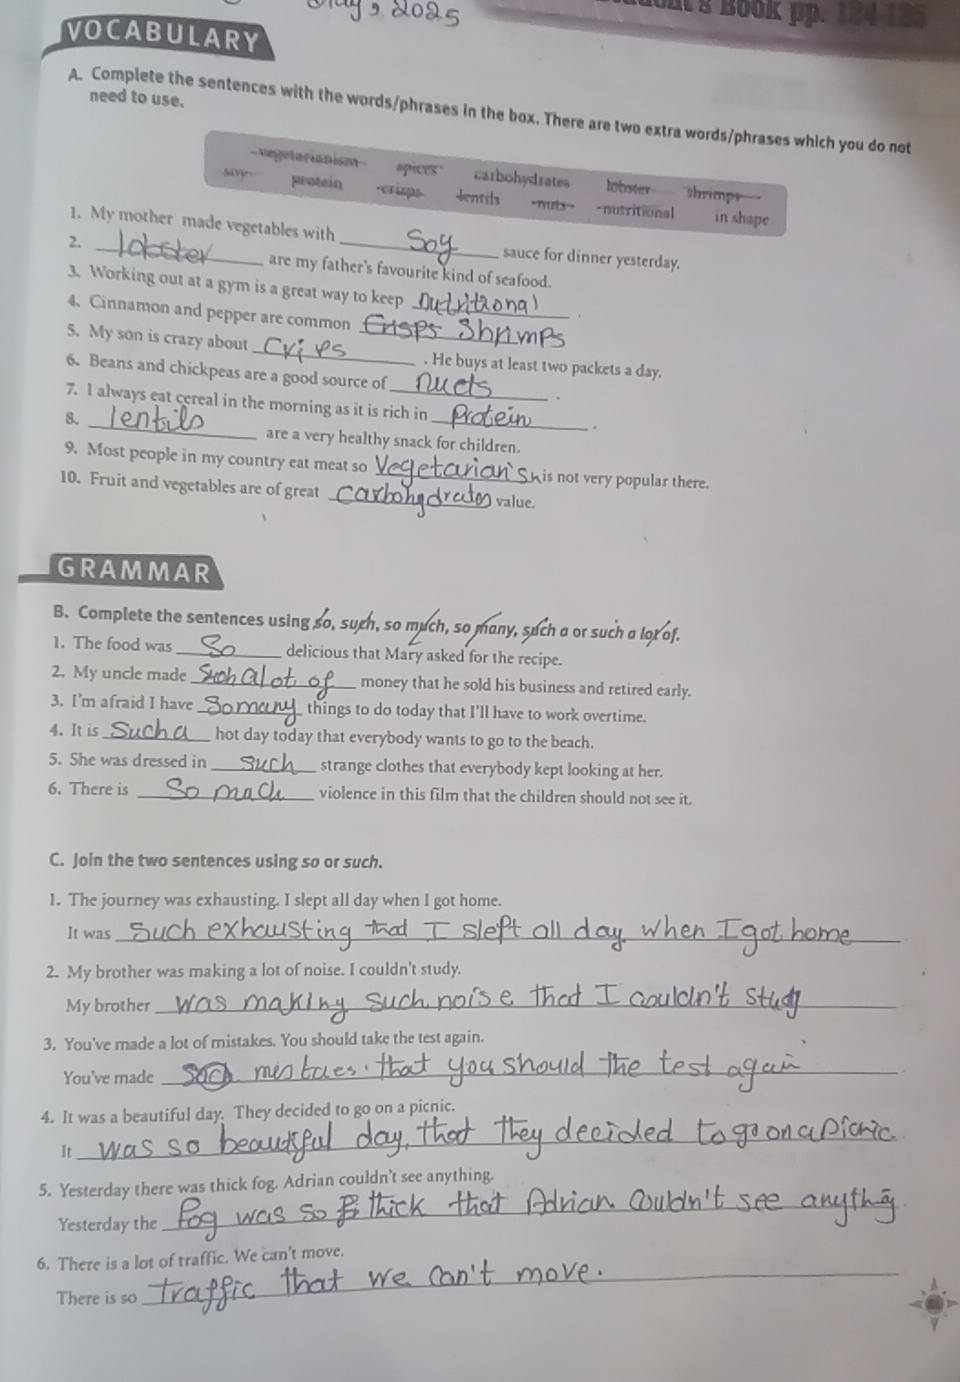 2025
Book pp. 124-125
VOCABULARY
A. Complete the sentences with the words/phrases in the box. There are two extra words/phrases which you do not
need to use.
vegetarianism spices carbohydrates lobster shrimps
soy protein crisps lentils nuts nutritional in shape
1. My mother made vegetables with Soy sauce for dinner yesterday.
2. lobster are my father's favourite kind of seafood.
3. Working out at a gym is a great way to keep nutritional .
4. Cinnamon and pepper are common Shrimps
5. My son is crazy about Crips . He buys at least two packets a day.
6. Beans and chickpeas are a good source of nuets .
7. I always eat cereal in the morning as it is rich in Protein .
8. lentils are a very healthy snack for children.
9. Most people in my country eat meat so is not very popular there.
10. Fruit and vegetables are of great carbohydrates value.
GRAMMAR
B. Complete the sentences using so, such, so much, so many, such a or such a lot of.
1. The food was So delicious that Mary asked for the recipe.
2. My uncle made Such a lot of money that he sold his business and retired early.
3. I'm afraid I have So many things to do today that I'll have to work overtime.
4. It is Such a hot day today that everybody wants to go to the beach.
5. She was dressed in Such strange clothes that everybody kept looking at her.
6. There is So much violence in this film that the children should not see it.
C. Join the two sentences using so or such.
1. The journey was exhausting. I slept all day when I got home.
It was Such exhausting that I sleft all day when I got home
2. My brother was making a lot of noise. I couldn't study.
My brother was making such noise that I couldn't study
3. You've made a lot of mistakes. You should take the test again.
You've made such that you should the test again
4. It was a beautiful day. They decided to go on a picnic.
It was so beautiful day, that they decided to go on a picnic.
5. Yesterday there was thick fog. Adrian couldn't see anything.
Yesterday the fog was so thick that Adrian couldn't see anything.
6. There is a lot of traffic. We can't move.
There is so traffic that we can't move.